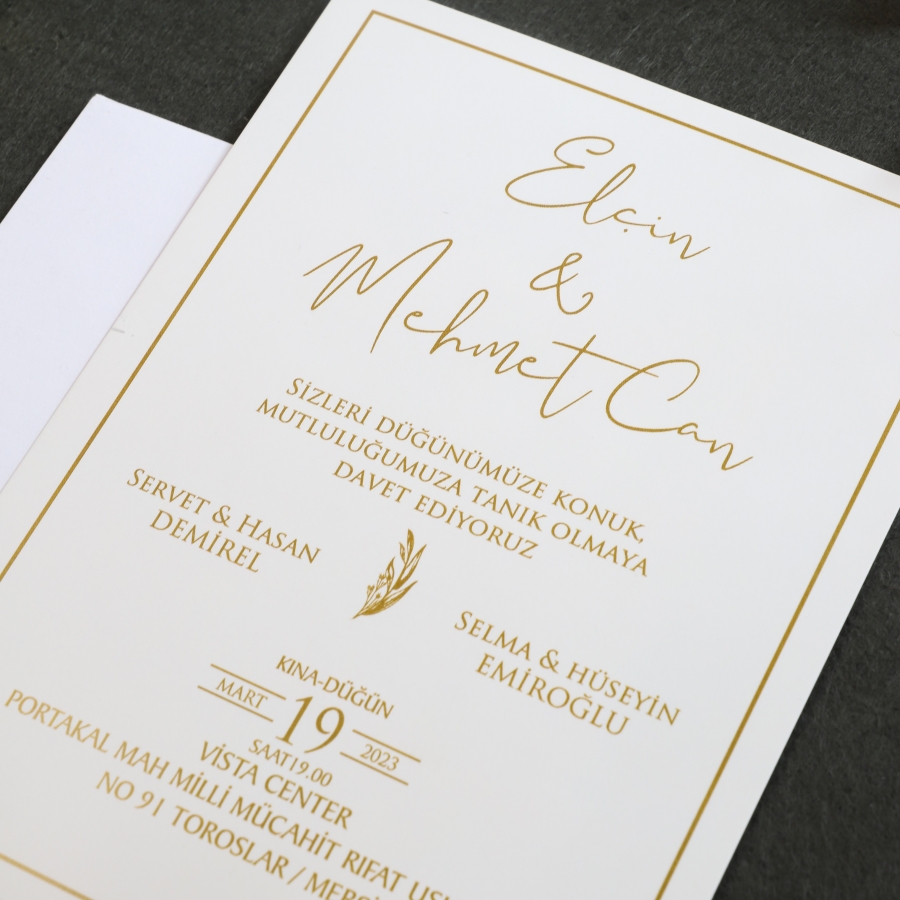 Elçin
&
Mehmet Can
SİZLERİ DÜĞÜNÜMÜZE KONUK,
MUTLULUĞUMUZA TANIK OLMAYA
DAVET EDİYORUZ
SERVET & HASAN
DEMİREL
SELMA & HÜSEYİN
EMİROĞLU
KINA-DÜĞÜN
MART 19 2023
SAAT19.00
VİSTA CENTER
PORTAKAL MAH MİLLİ MÜCAHİT RIFAT
NO 91 TOROSLAR /